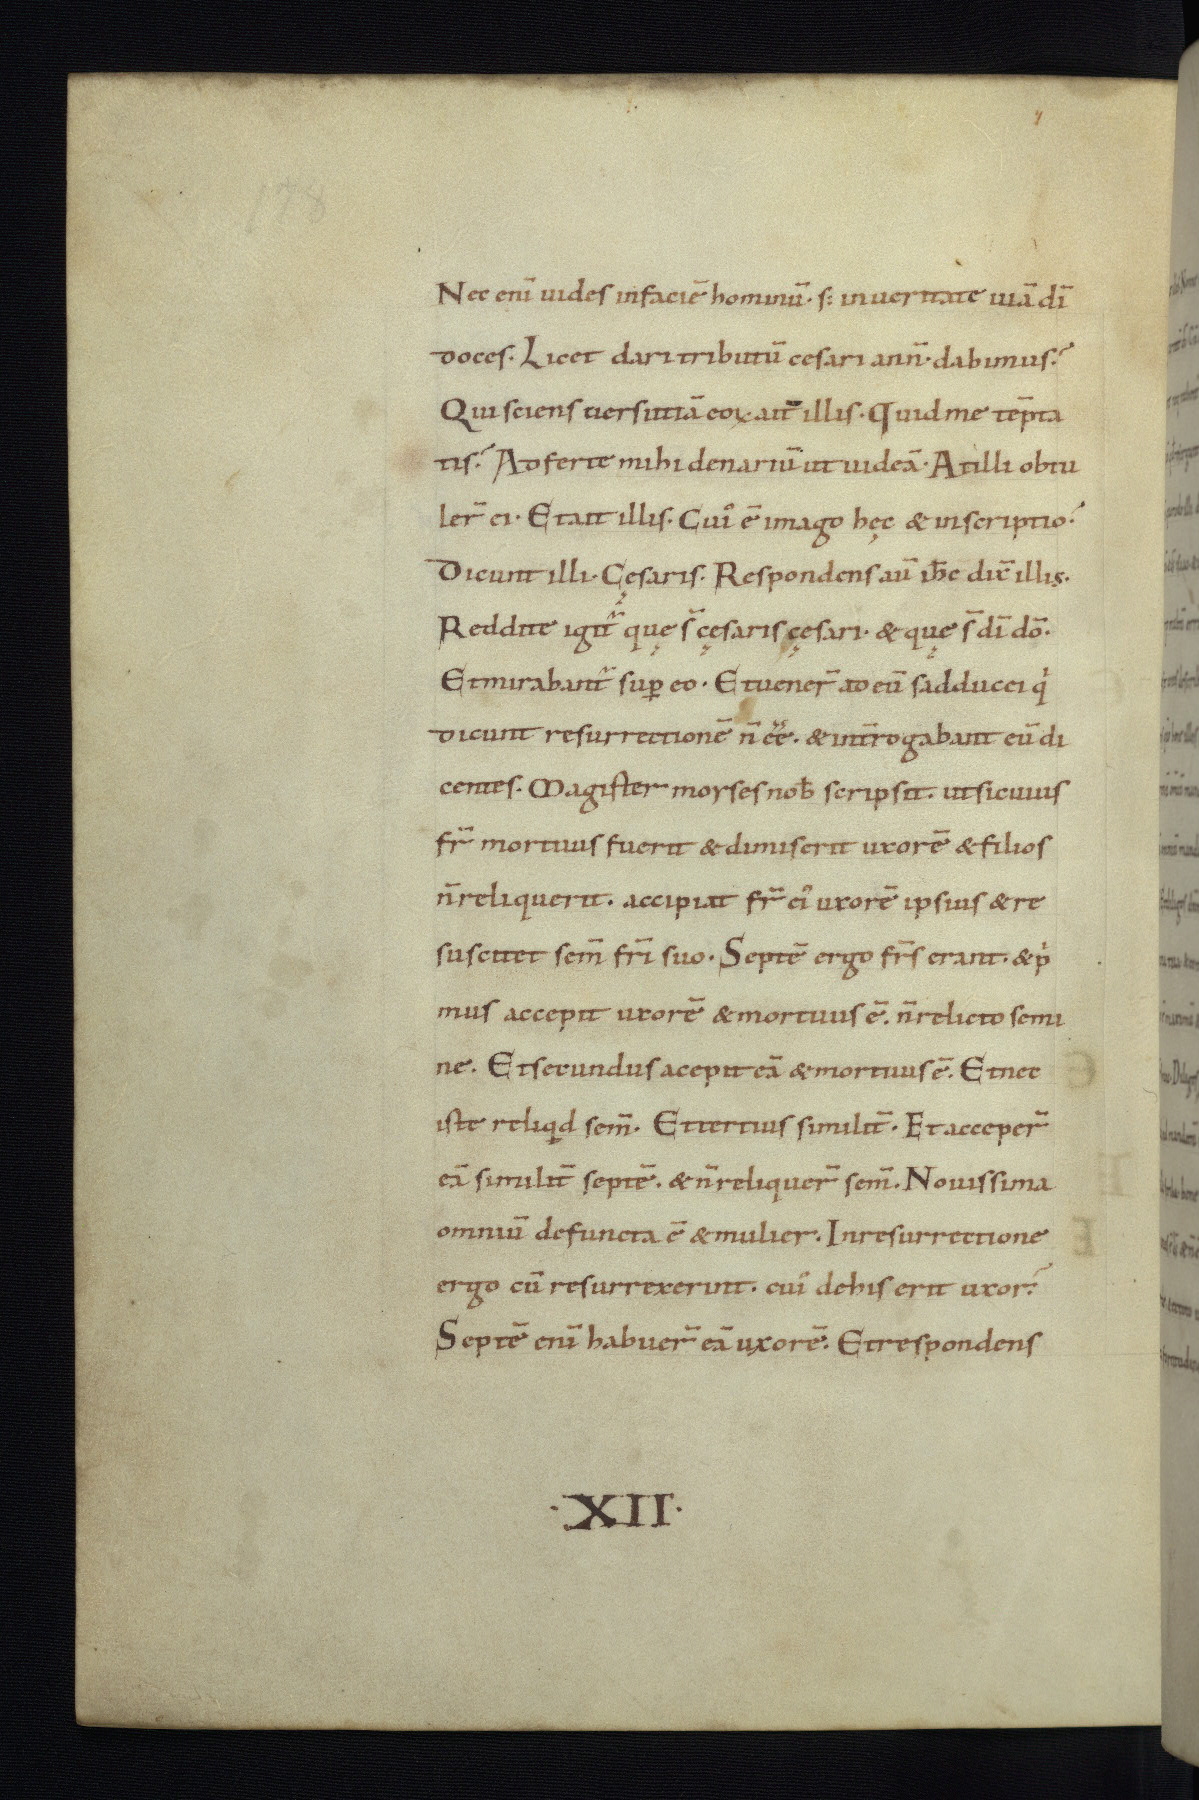 178
Nec eni͞ uides infaciē hominū· s: inueritate uiā di͞
doces· Licet dari tributū cesari an n̄· dabimus?
Qui sciens uersutiā eoꝝ ait illis· Quid me te͞pta
tis? Adferte mihi denariū ut uideā· At illi obtu
ler̄ ei· Et ait illis· Cui᾽ ē imago hęc & inscriptio?
Dicunt illi· Cęsaris· Respondens au͞ ih͞c dix̄ illis·
Reddite igit᷑ quę s̄ cęsaris cęsari· & quę s̄ di͞ dō·
Et mirabant᷑ suꝑ eo· Et uener̄ ad eū sadducei qͥ
dicunt resurrectionē n̄ eē͞· & int͞rogabant eū di
centes· Magister moyses nob̄ scripsit· ut si cuius
fr̄ mortuus fuerit & dimiserit uxorē & filios
n̄ reliquerit· accipiat fr̄ ei᾽ uxorē ipsius & re
suscitet sem̄ fr̄i suo· Septē ergo fr̄s erant· & pͥ
mus accepit uxorē & mortuus ē· n̄ relicto semi
ne· Et secundus acepit eā & mortuus ē· Et nec
iste reliqͥd sem̄· Et tertius similit̄· Et acceper̄
eā similit̄ septē· & n̄ reliquer̄ sem̄· Nouissima
omniū defuncta ē & mulier· In resurrectione
ergo cū resurrexerint· cui᾽ de his erit uxor?
Septē eni͞ habuer̄ eā uxorē· Et respondens
·XII·